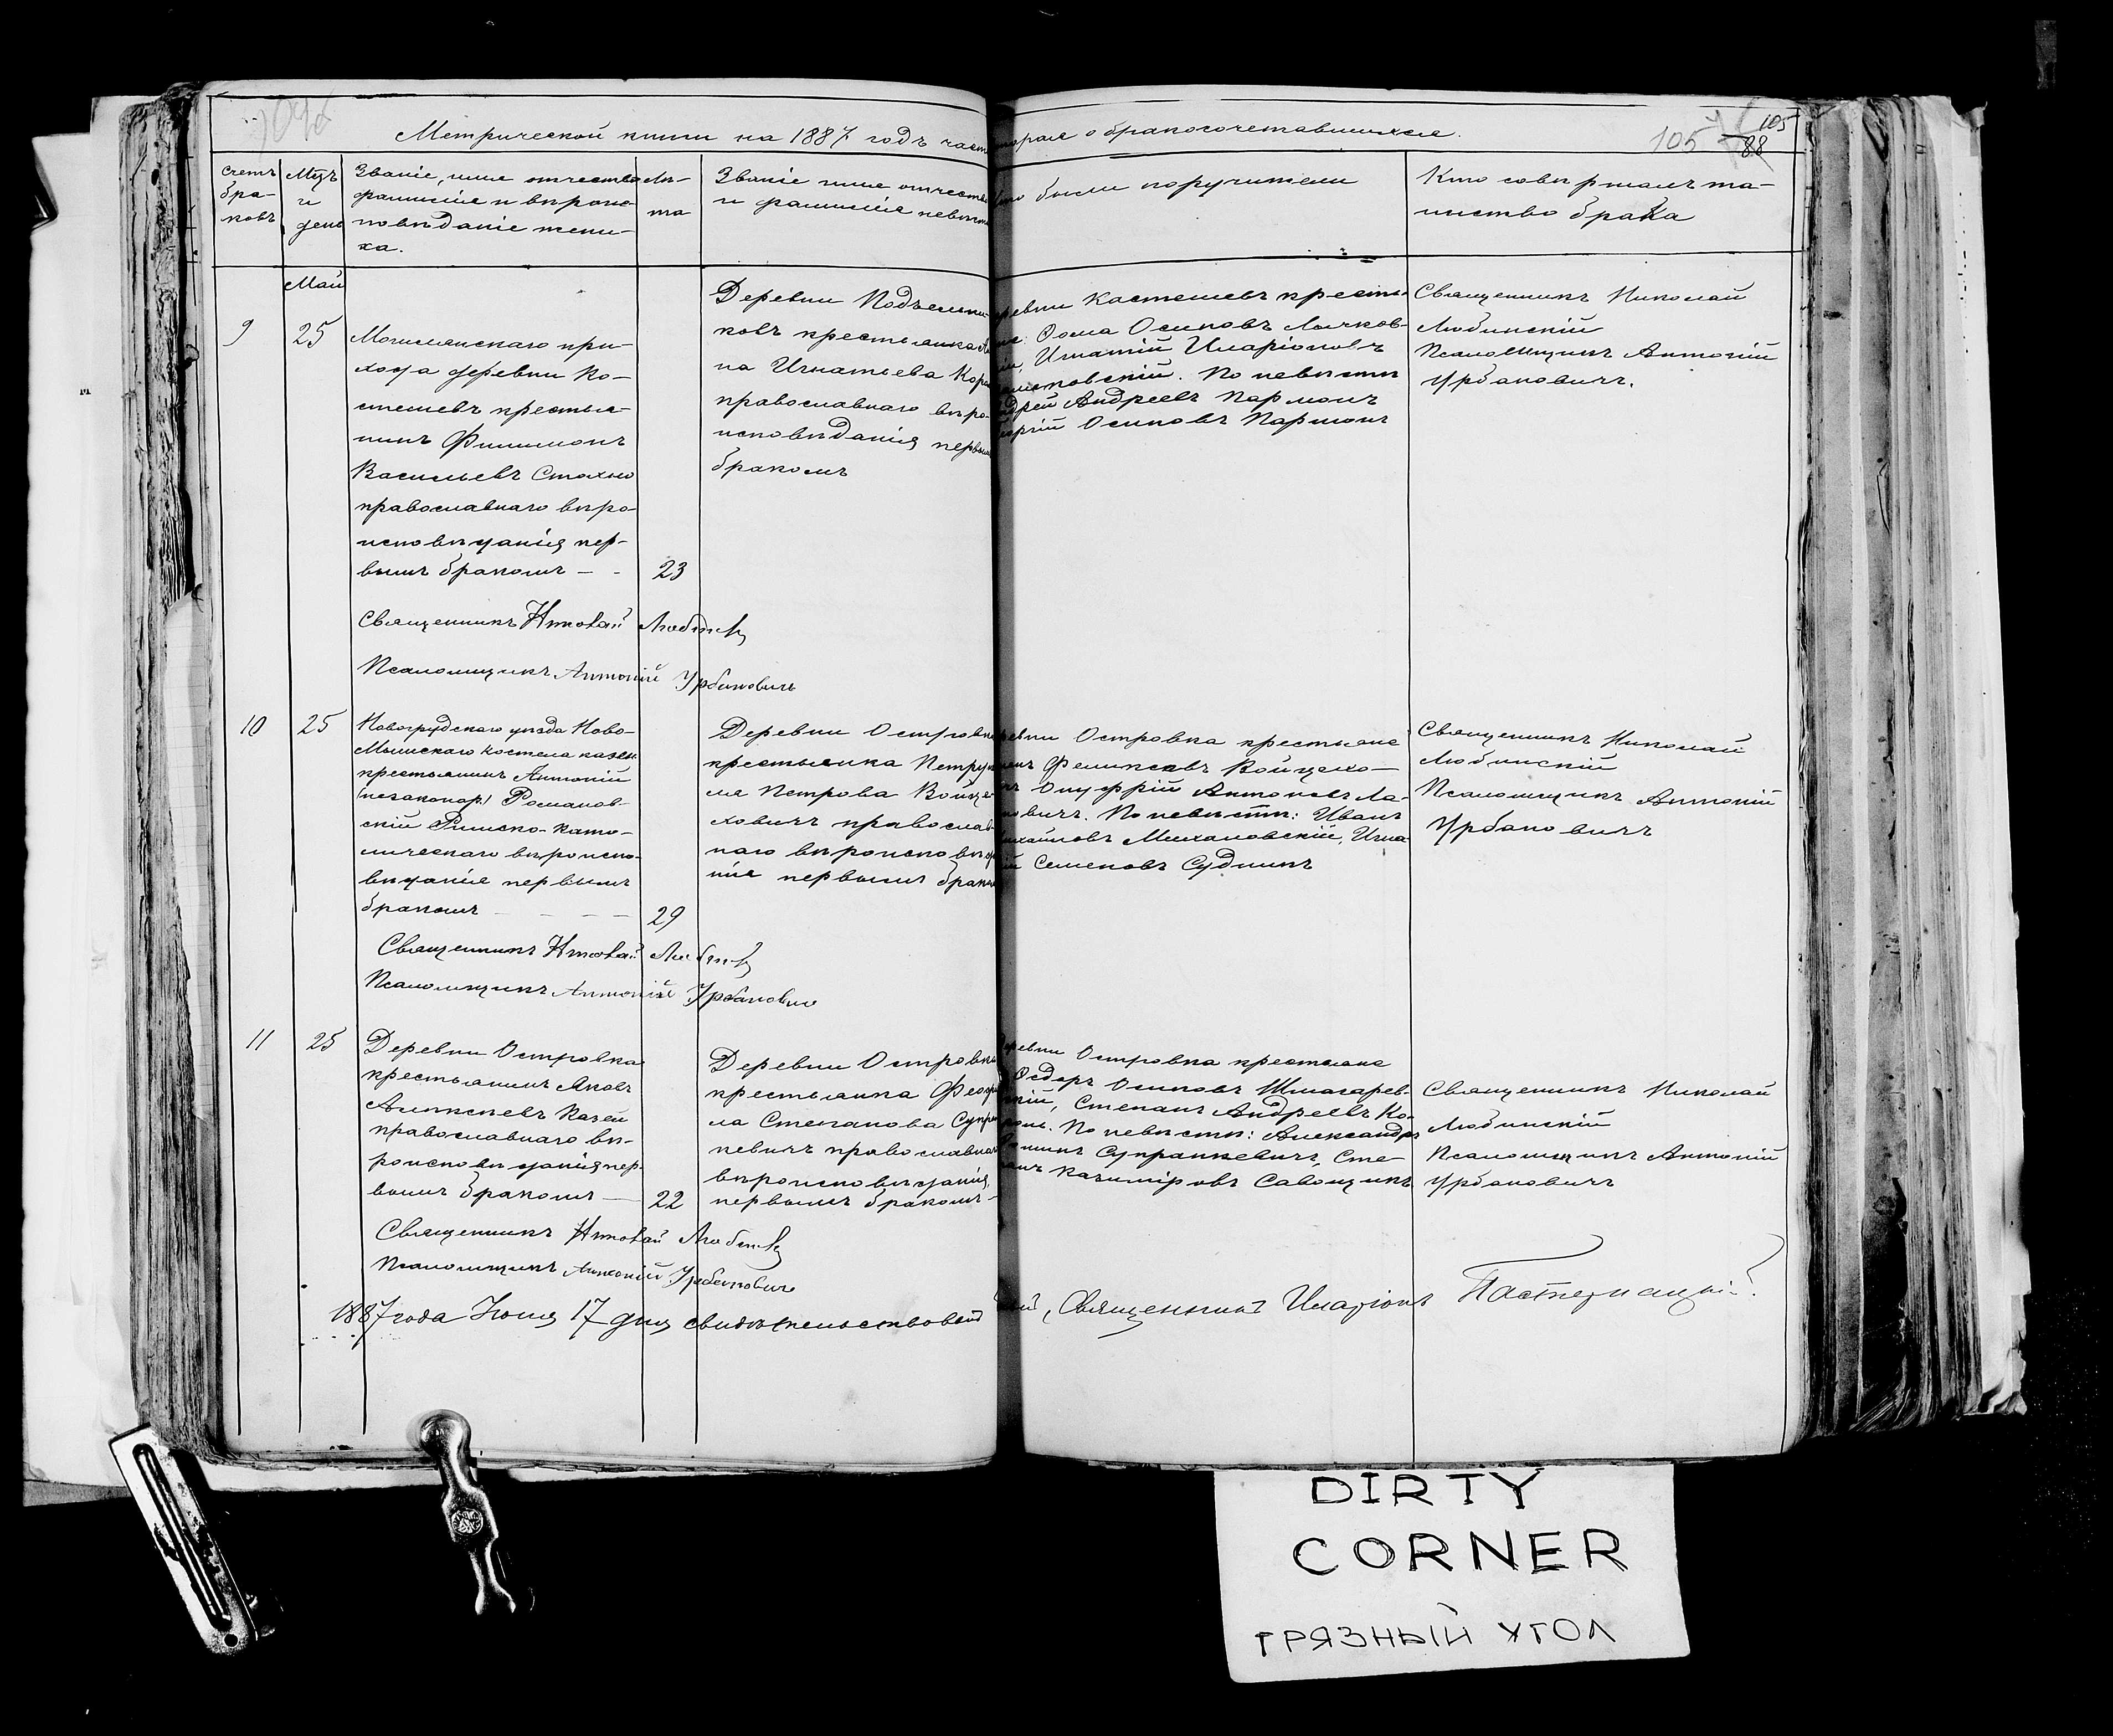 Метрической книги на 1887 годъ часть
вторая о бракосочетавшихся.
105
105
88
Счетъ бра-ковъ
Мцъ и день
Званіе, имя отчество
фамилія и вѣроис-
повѣданіе жени-
ха.
Лѣ-
та
Званіе имя отчество
и фамилія невѣсты
Кто были поручители
Кто совершалъ та-
инство брака
Май
9
25
Могилянскаго при-
хода деревни Ко-
стешевъ крестья-
нинъ Филимонъ
Васильевъ Стахно
православнаго вѣро-
исповѣданія пер-
вымъ бракомъ - -
23
Деревни
крестьянка
на Игнатьева
православнаго вѣро-
исповѣданія первымъ
бракомъ
деревни Костешевъ крестья-
Ѳома Осиповъ
Игнатій Иларіоновъ
По невѣстѣ
Андрей Андреевъ Пармонъ
Осиповъ Пармонъ
Священникъ Николай
Любинскій
Псаломщикъ Антоній
Урбановичъ.
Священникъ Николай
Псаломщикъ Антоній Урбановичъ
10
25
Новогрудскаго уѣзда Ново-
Мышскаго костела казен.
крестьянинъ Антоній
(незаконор.) Романов-
скій Римско-като-
лическаго вѣроиспо-
вѣданія первымъ
бракомъ - - - -
29
Деревни Островка
крестьянка Петру
ля Петрова Войце-
ховичъ православ-
наго вѣроисповѣда
нія первымъ бракомъ
деревни Островка крестьяне
Феликсовъ Войцехо-
Онуфрій Антоновъ Ла-
новичъ. По невѣстѣ: Иванъ
Михайловъ Михаловскій, Игна-
тій Семеновъ Судникъ
Священникъ Николай
Любинскій
Псаломщикъ Антоній
Урбановичъ
Священникъ Николай
Псаломщикъ Антоній Урбановичъ
11
25
Деревни Островка
крестьянинъ Яковъ
Алексѣевъ Казей
православнаго вѣ-
роисповѣданія пер-
вымъ бракомъ -
22
Деревни Островка
крестьянка
ла Степанова
кевичъ православнаго
вѣроисповѣданія,
первымъ бракомъ -
Деревни Островка крестьяне
Ѳедоръ Осиповъ Шпагарев-
скій, Степанъ Андреевъ Ко-
По невѣстѣ: Александръ
Супранкевичъ, Сте-
панъ Казиміровъ Савощикъ
Священникъ Николай
Любинскій
Псаломщикъ Антоній
Урбановичъ
Священникъ Николай
Псаломщикъ Антоній Урбановичъ
1887 года Іюня 17 дня свидѣтельствовалъ
Священникъ Иларіонъ Пастернацкій.
DIRTY
CORNER
ГРЯЗНЫЙ УГОЛ